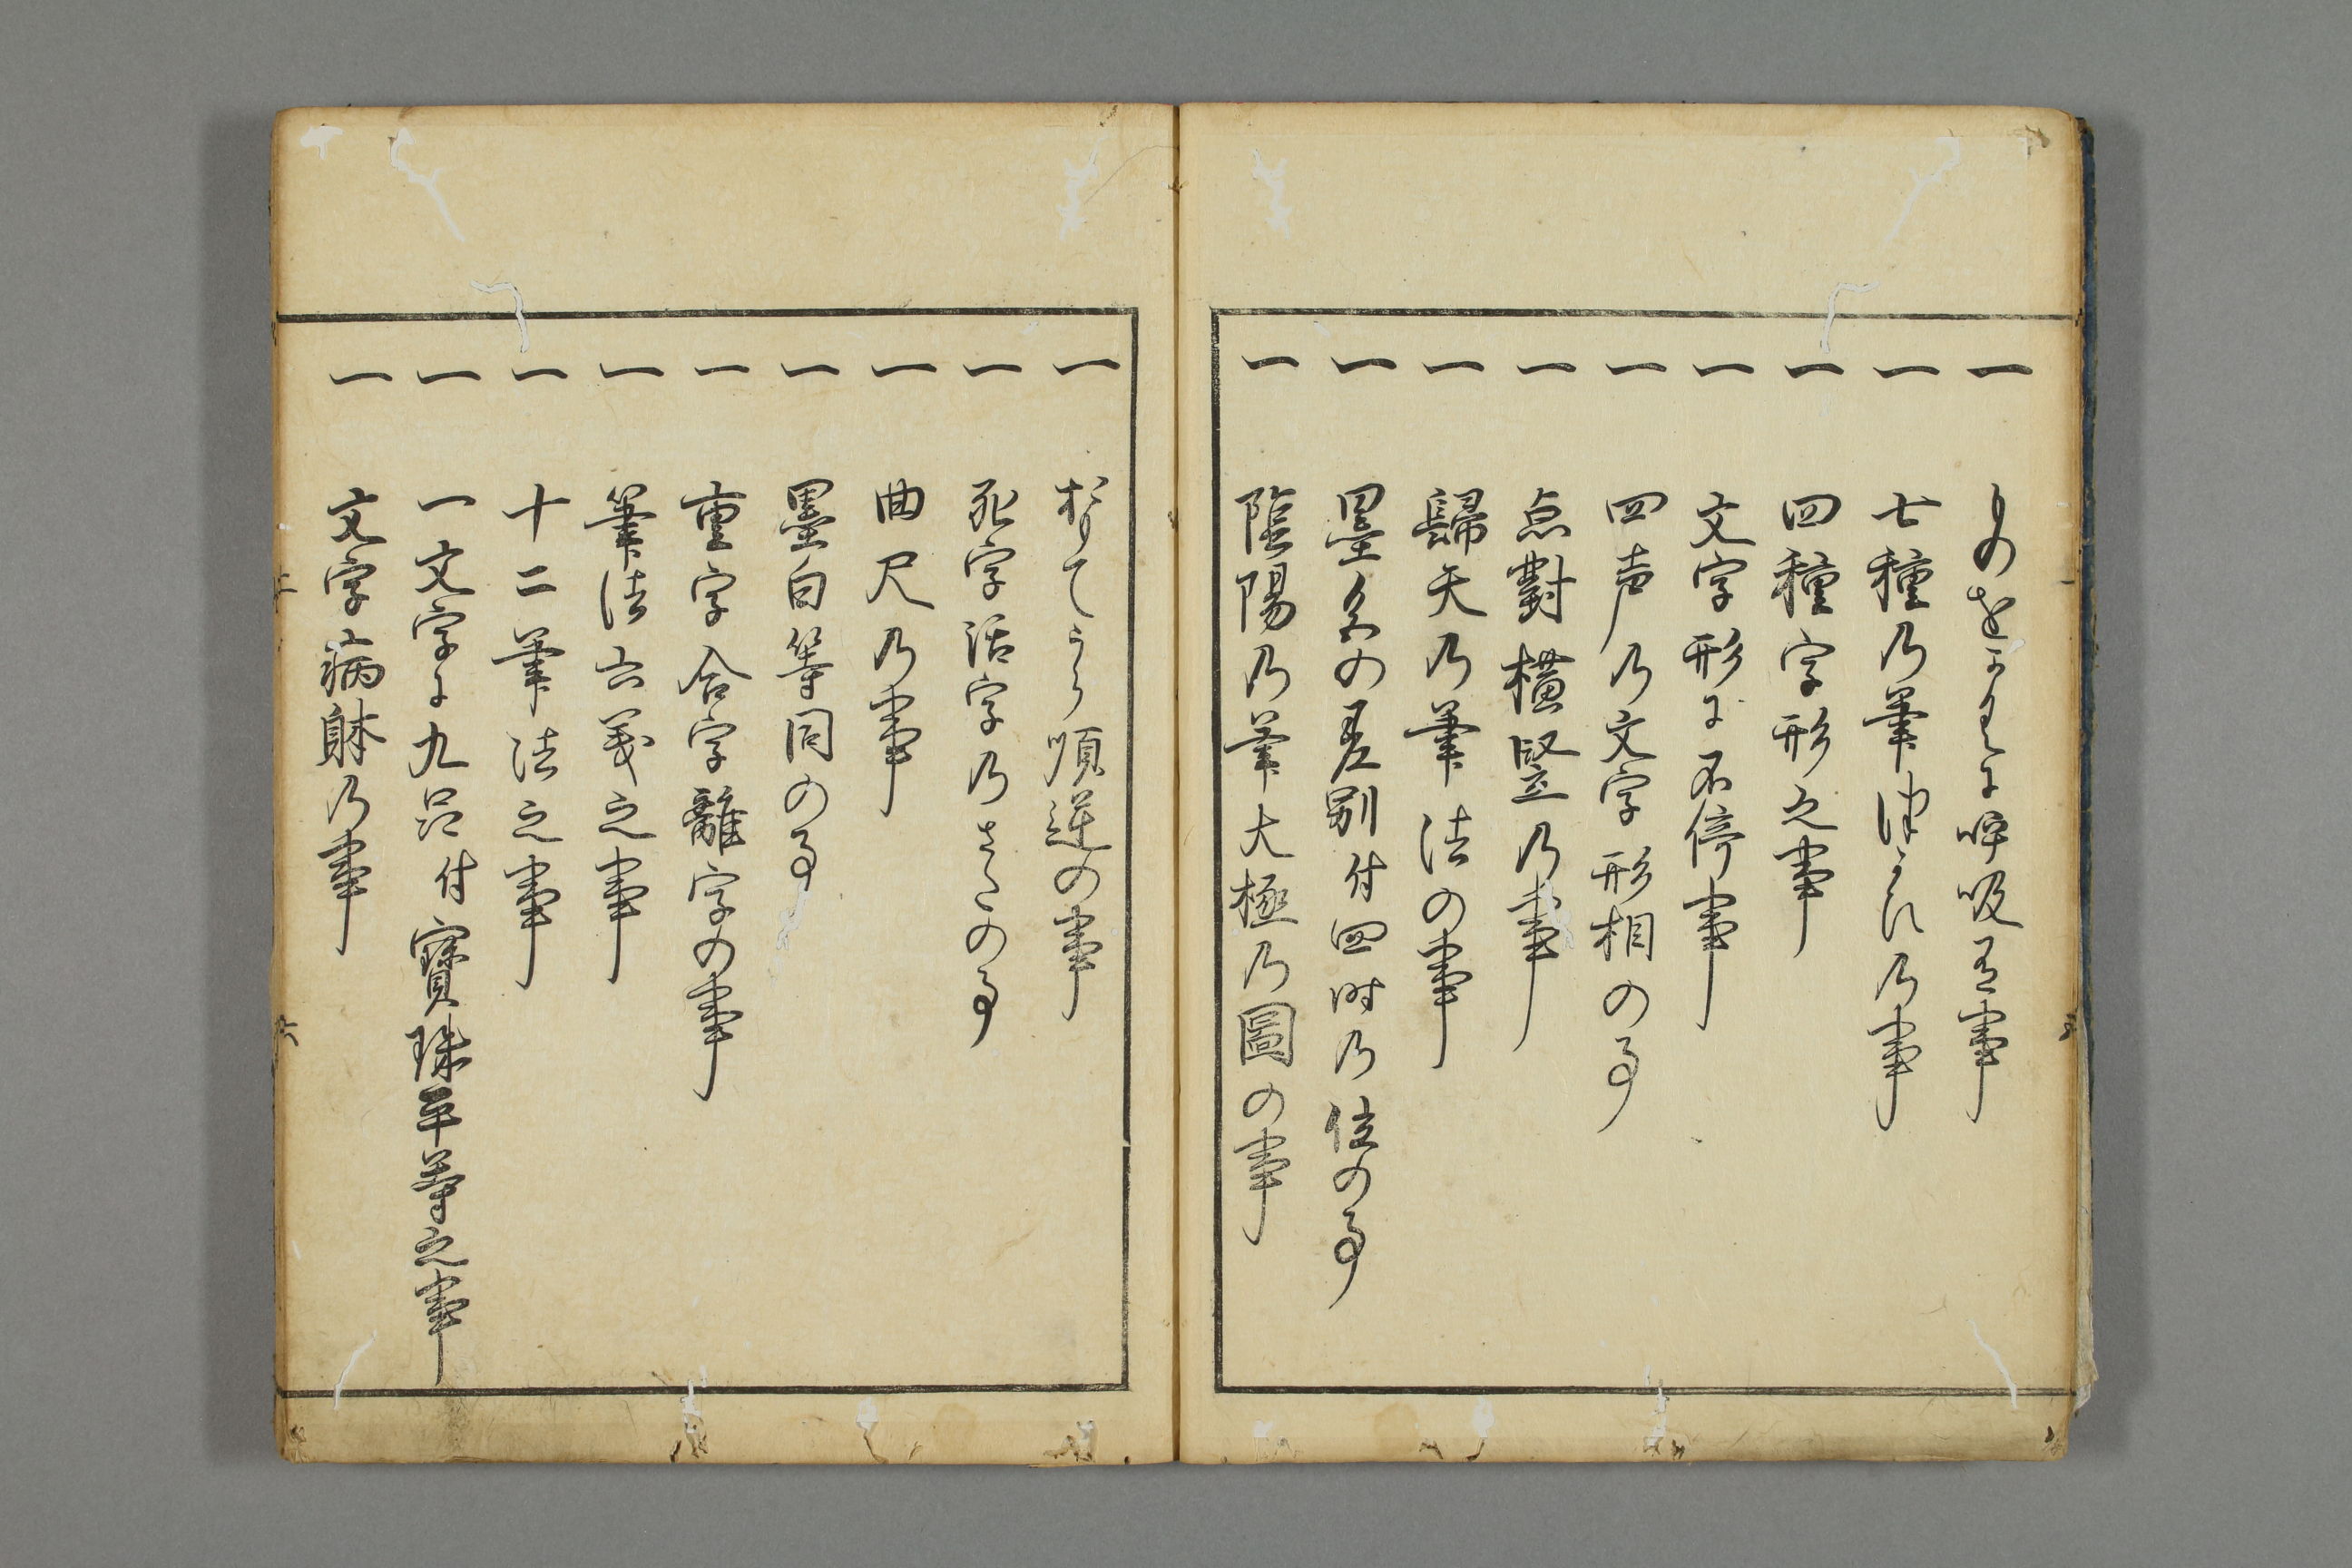 一 ものをかくに呼吸有事
一 七種乃筆つかひ乃事
一 四種字形之事
一 文字形に不停事
一 四声乃文字形相の事
一 点對横竪乃事
一 歸天乃筆法の事
一 墨色の差別付四時乃位の事
一 陰陽乃筆大極乃圖の事
一 順逆の事
一 死字活字乃さたの事
一 曲尺乃事
一 墨白等同の事
一 重字合字離字の事
一 筆法六義之事
一 十二筆法之事
一 一文字に九品付寶珠平等之事
一 文字病躰乃事